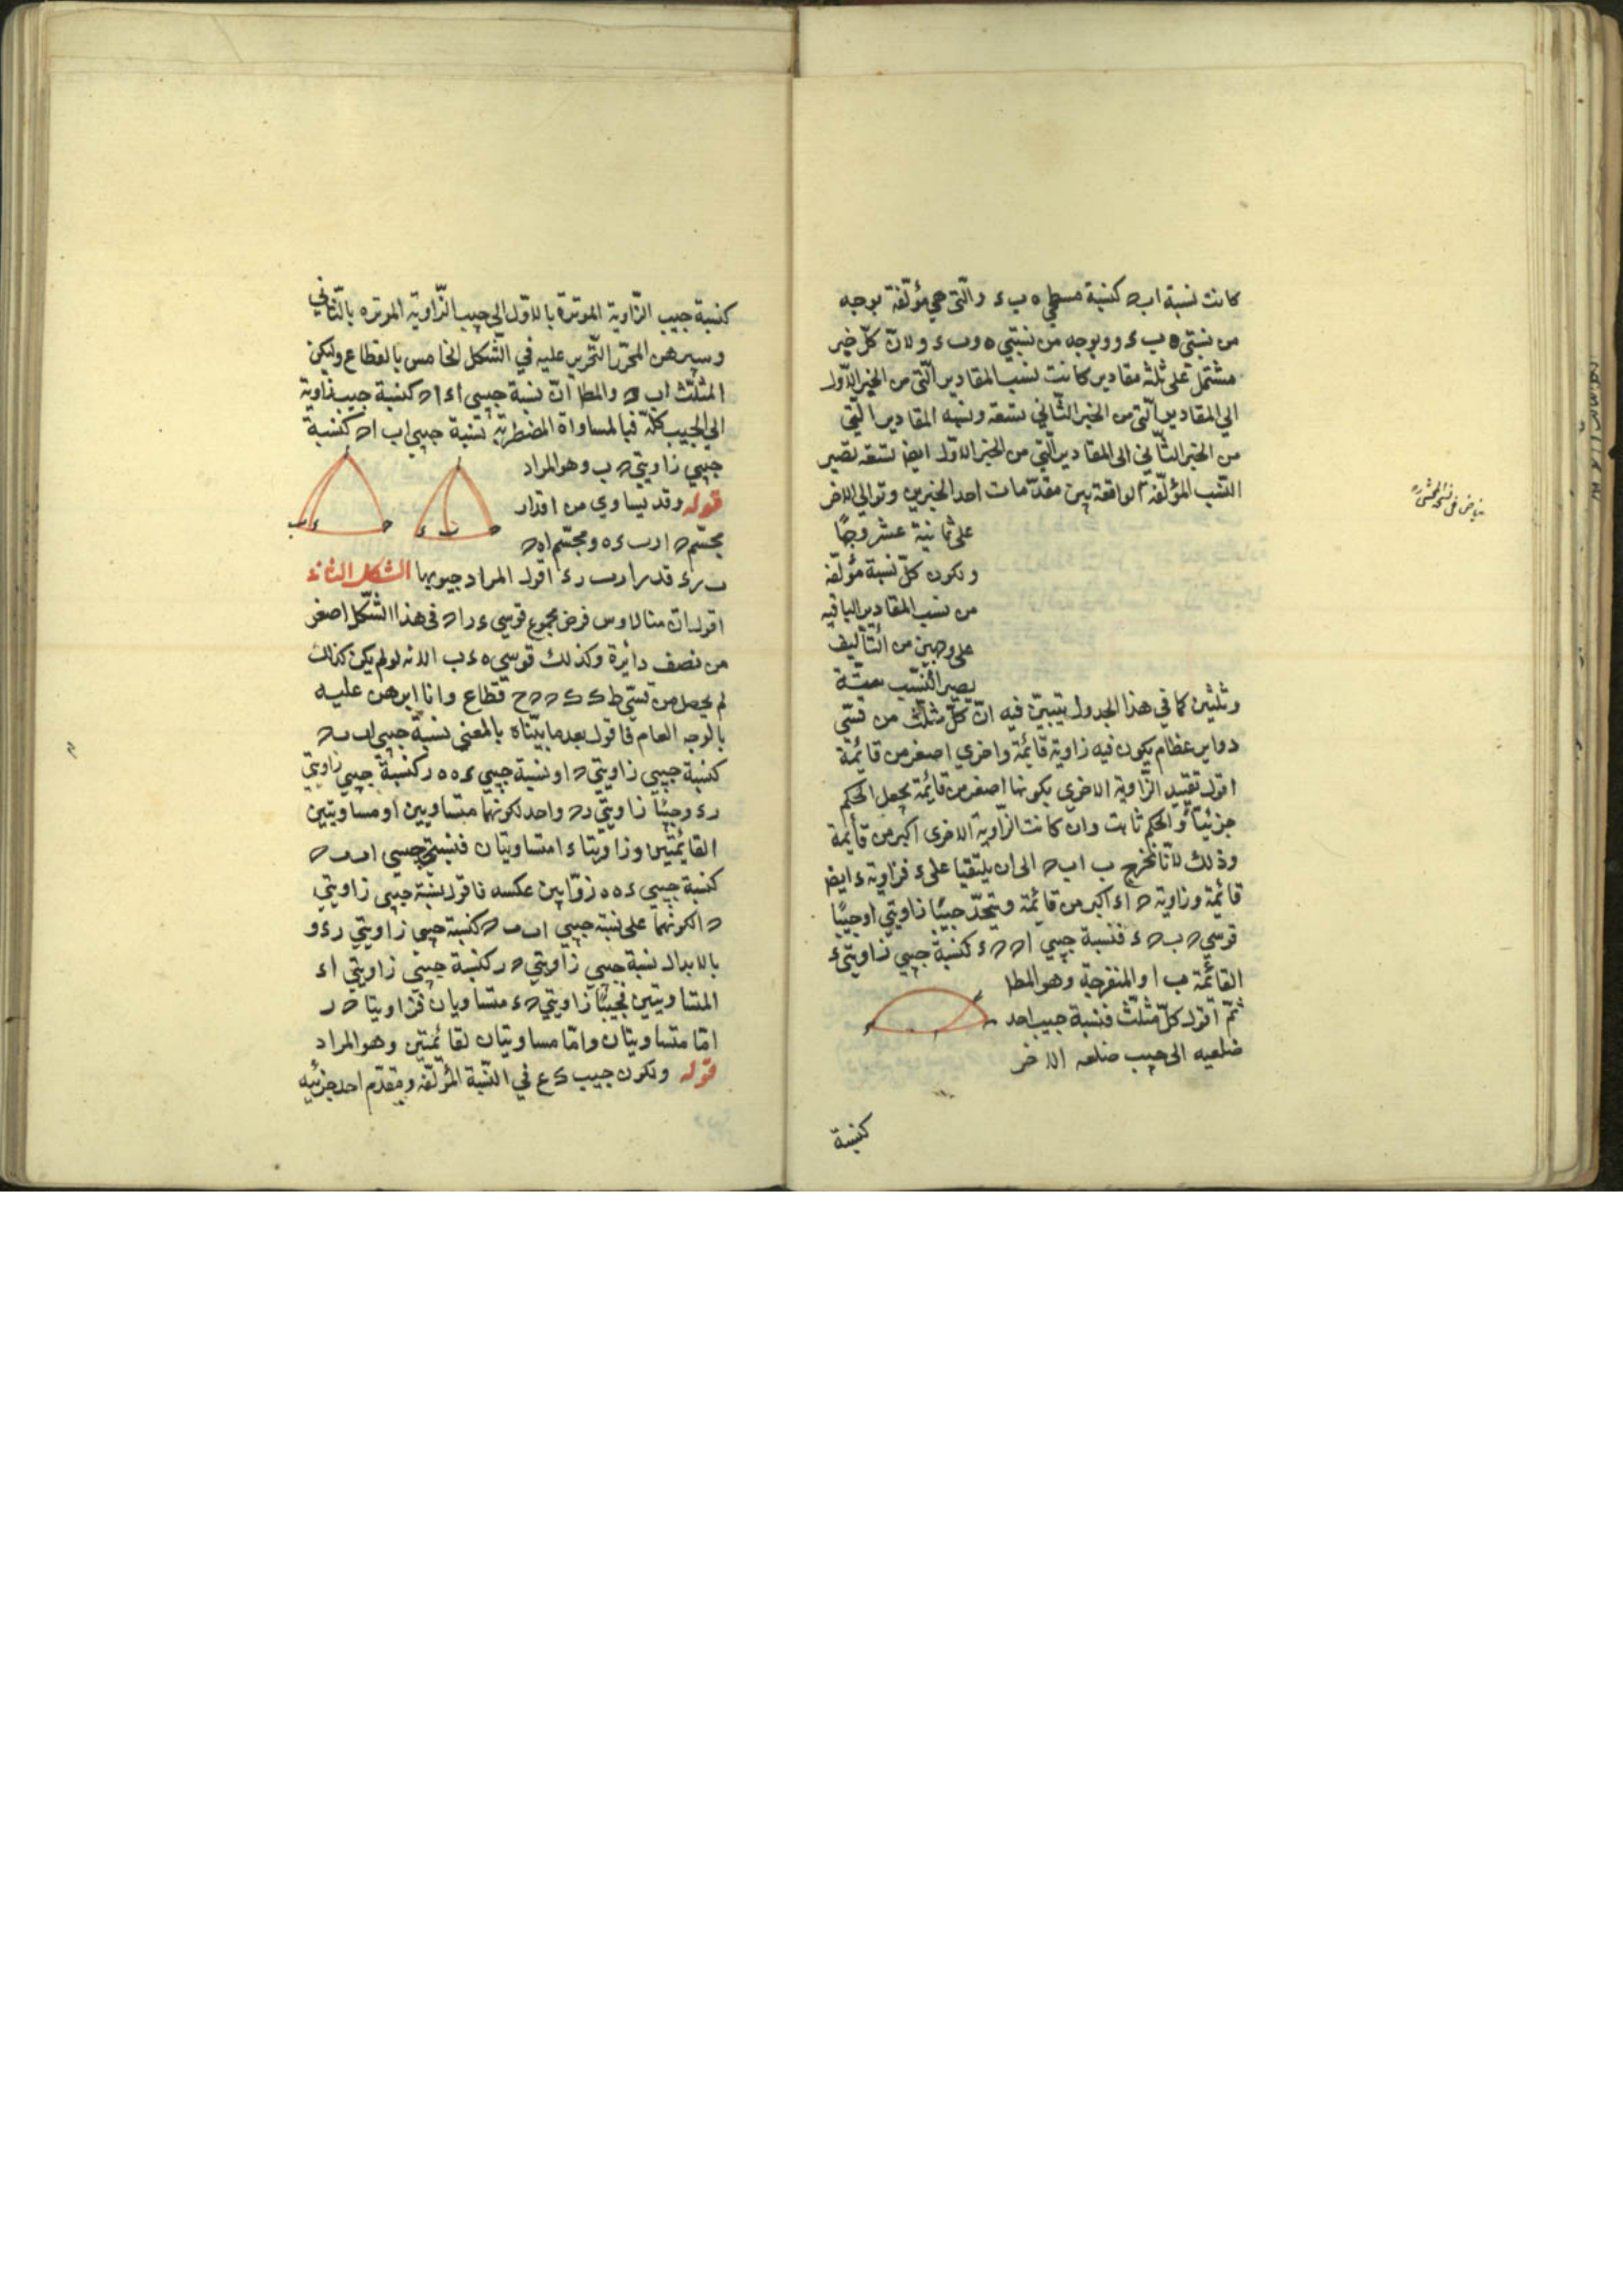 كانت نسبة ا ب ه كنسبة مسطحي ه ب ء والتي هي مؤلفة بوجه
من نسبتي ه ب ء و وبوجه من نسبتي ه و ب ء ولان كل خبر
مشتمل على ثلثة مقادير كانت نسب المقادير التي من الخبر الاول
الى المقادير التي من الخبر الثاني تسعة ونسبة المقادير التي
من الخبر الثاني الى المقادير التي من الخبر الاول ايض تسعة تصير
النسب المؤلفة الواقعة بين مقدمات احد الخبرين وتوالي الاخر
على ثمانية عشر وجها
وتكون كل نسبة مؤلفة
من نسب المقادير الباقية
على وجهين من التاليف
يصير النسب ستة
وثلثين كما في هذا الجدول تبين فيه ان كل مثلث من قسي
دواير عظام يكون فيه زاوية قائمة واخرى اصغر من قائمة
اقول تقييد الزاوية الاخرى بكونها اصغر من قائمة يجعل الحكم
جزئيا والحكم ثابت وان كانت الزاوية الاخرى اكبر من قائمة
وذلك لانا نخرج ب ا ب ه الى ان يلتقيا على ء فزاوية ء ايض
قائمة وزاوية ه ا ء اكبر من قائمة ويتحد جيبا زاويتي ا وجيبا
قوسي ه ب ه ء فنسبة جيبي ا ه ه ء كنسبة جيبي زاويتي ء
القائمة ب ا والمنفرجة وهو المطا
ثم اقول كل مثلث فنسبة جيب احد
ضلعيه الى جيب ضلعه الاخر
كنسبة
بياض في نسخة المحشي ره
كنسبة جيب الزاوية الموترة بالاول الى جيب الزاوية الموترة بالثاني
وسيبرهن المحرر التحرير عليه في الشكل الخامس بالقطاع وليكن
المثلث ا ب ه والمطا ان نسبة جيبي ا ء ا ه كنسبة جيب زاوية
الى الجيب كله فبالمساواة المضطربة نسبة جيبي ا ب ا ه كنسبة
جيبي زاويتي ه ب وهو المراد
قوله وقد يساوي من اقدار
مجسم ه ا ر ب ء ه ومجسم ا ه ه
ب ر ء قدر ا ر ب ر ء اقول المراد جيوبها الشكل الثاني
اقول ان منالاوس فرض مجموع قوسي ء ر ا ه في هذا الشكل اصغر
من نصف دائرة وكذلك قوسي ه ء ب الا انه لو لم يكن كذلك
لم يحصل من قسي ط ك ك ح ح ح قطاع وانا ابرهن عليه
بالوجه العام فاقول بعد ما بيناه بالمعنى نسبة جيبي ا ب ب ه
كنسبة جيبي زاويتي ه ا ونسبة جيبي ء ه ه ر كنسبة جيبي زاويتي
ر ء وجيبا زاويتي ر ه واحد لكونهما متساويين او مساويتين
القائمتين وزاويتا ء ا متساويتان فنسبتي جيبي ا ب ب ه
كنسبة جيبي ء ه ه ر وابين عكسه فاقول نسبة جيبي زاويتي
ه ا لكونهما على نسبة جيبي ا ب ب ه كنسبة جيبي زاويتي ر ء و
بالابدال نسبة جيبي زاويتي ه ر كنسبة جيبي زاويتي ا ء
المتساويتين فجيبا زاويتي ه ء متساويان فزاويتا ه ر
اما متساويتان واما مساويتان لقائمتين وهو المراد
قوله وتكون جيب ك ع في النسبة المؤلفة ومقدم احد جزئيه